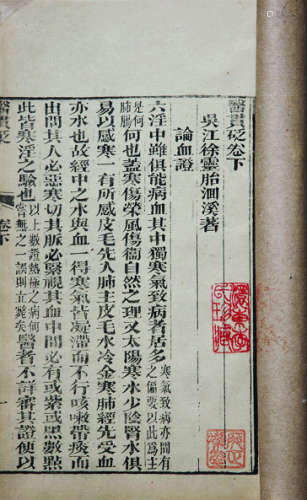 醫貫砭卷下
吳江徐靈胎洄溪著
論血證
六淫中雖俱能病血其中獨寒氣致病者居多寒氣致病亦間有之偏要以此爲主
是何肺腸何也蓋寒傷榮風傷衛自然之理又太陽寒水少陰腎水俱
易以感寒一有所感皮毛先入肺主皮毛水冷金寒肺經先受
亦水也故經中之水與血一得寒氣皆凝滯而不行咳嗽帶痰而
出問其人必惡寒切其脈必緊視其血中間必有或紫或黑數點
此皆寒淫之驗也以上數證熱極之病何嘗無之一誤則立斃矣醫者不詳審其證便以
醫貫砭
卷下
一